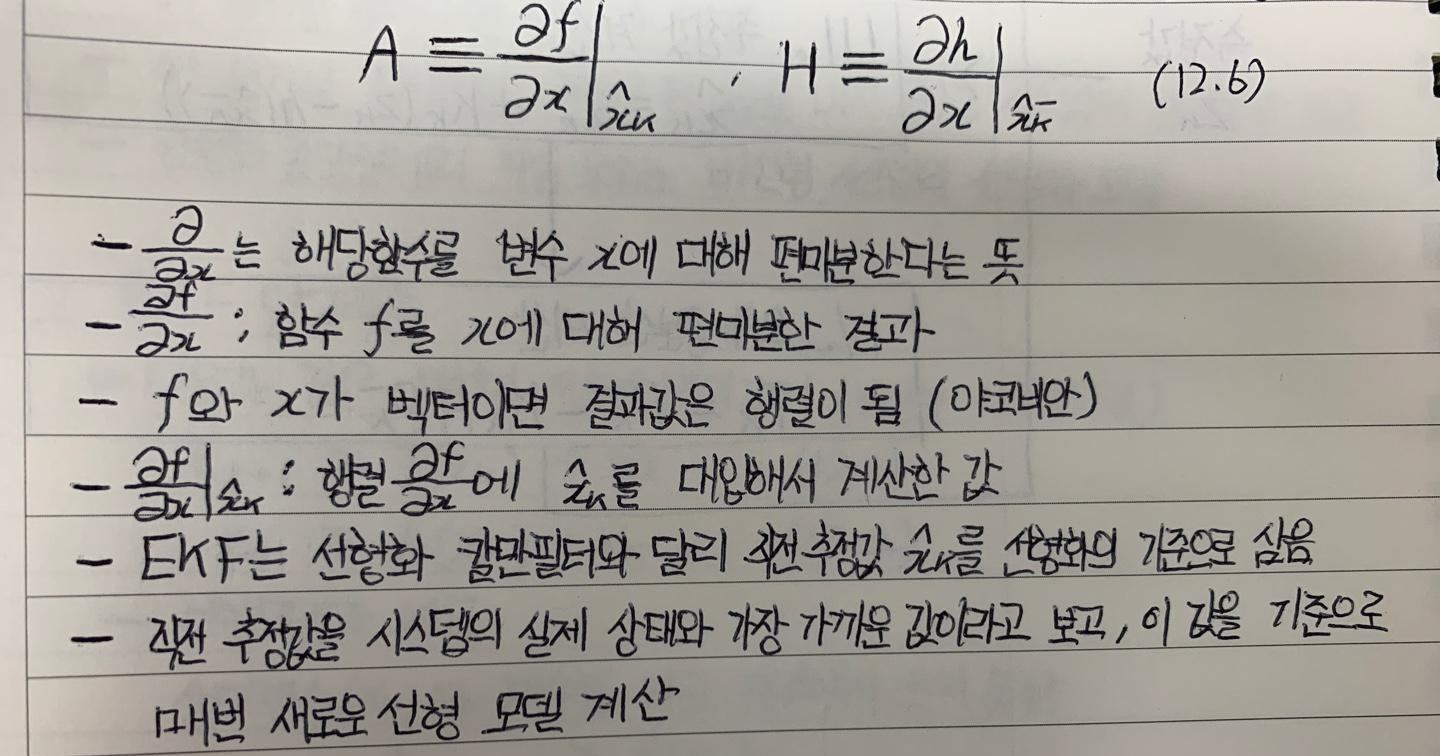 A ≡ ∂f/∂x|x̂ₖ , H ≡ ∂h/∂x|x̂ₖ⁻ (12.6)
- ∂/∂x는 해당함수를 변수 x에 대해 편미분한다는 뜻
- ∂f/∂x : 함수 f를 x에 대해 편미분한 결과
- f와 x가 벡터이면 결과값은 행렬이 됨 (야코비안)
- ∂f/∂x|x̂ₖ : 행렬 ∂f/∂x에 x̂ₖ를 대입해서 계산한 값
- EKF는 선형화 칼만필터와 달리 직전 추정값 x̂ₖ를 선형화의 기준으로 삼음
- 직전 추정값을 시스템의 실제 상태와 가장 가까운 값이라고 보고, 이 값을 기준으로
매번 새로운 선형 모델 계산